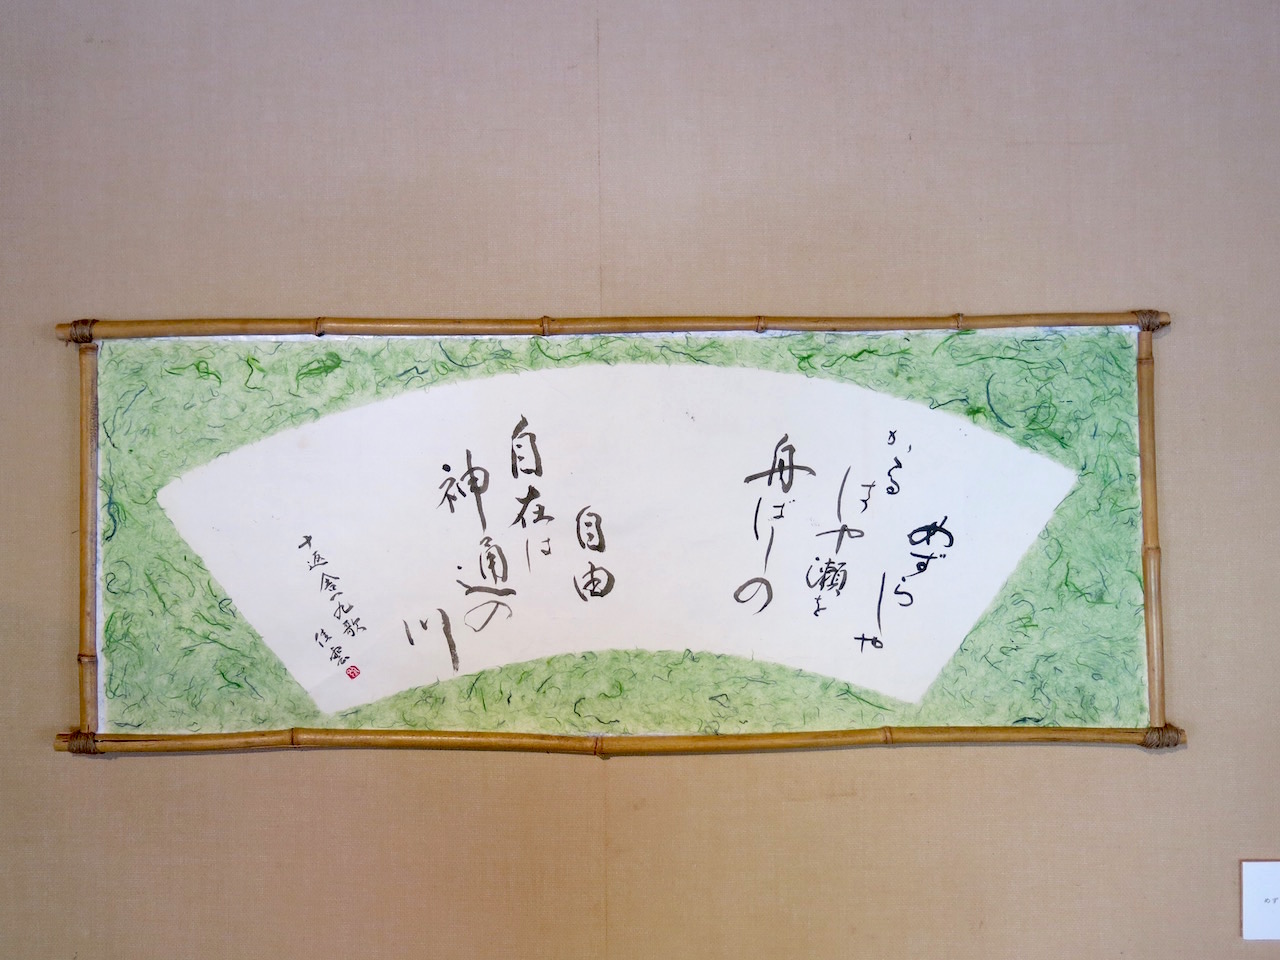 めずらしや
かゝる
はや瀬を
舟ばしの
自由
自在は
神通の
川
十返舎一九歌
佳雲
めず